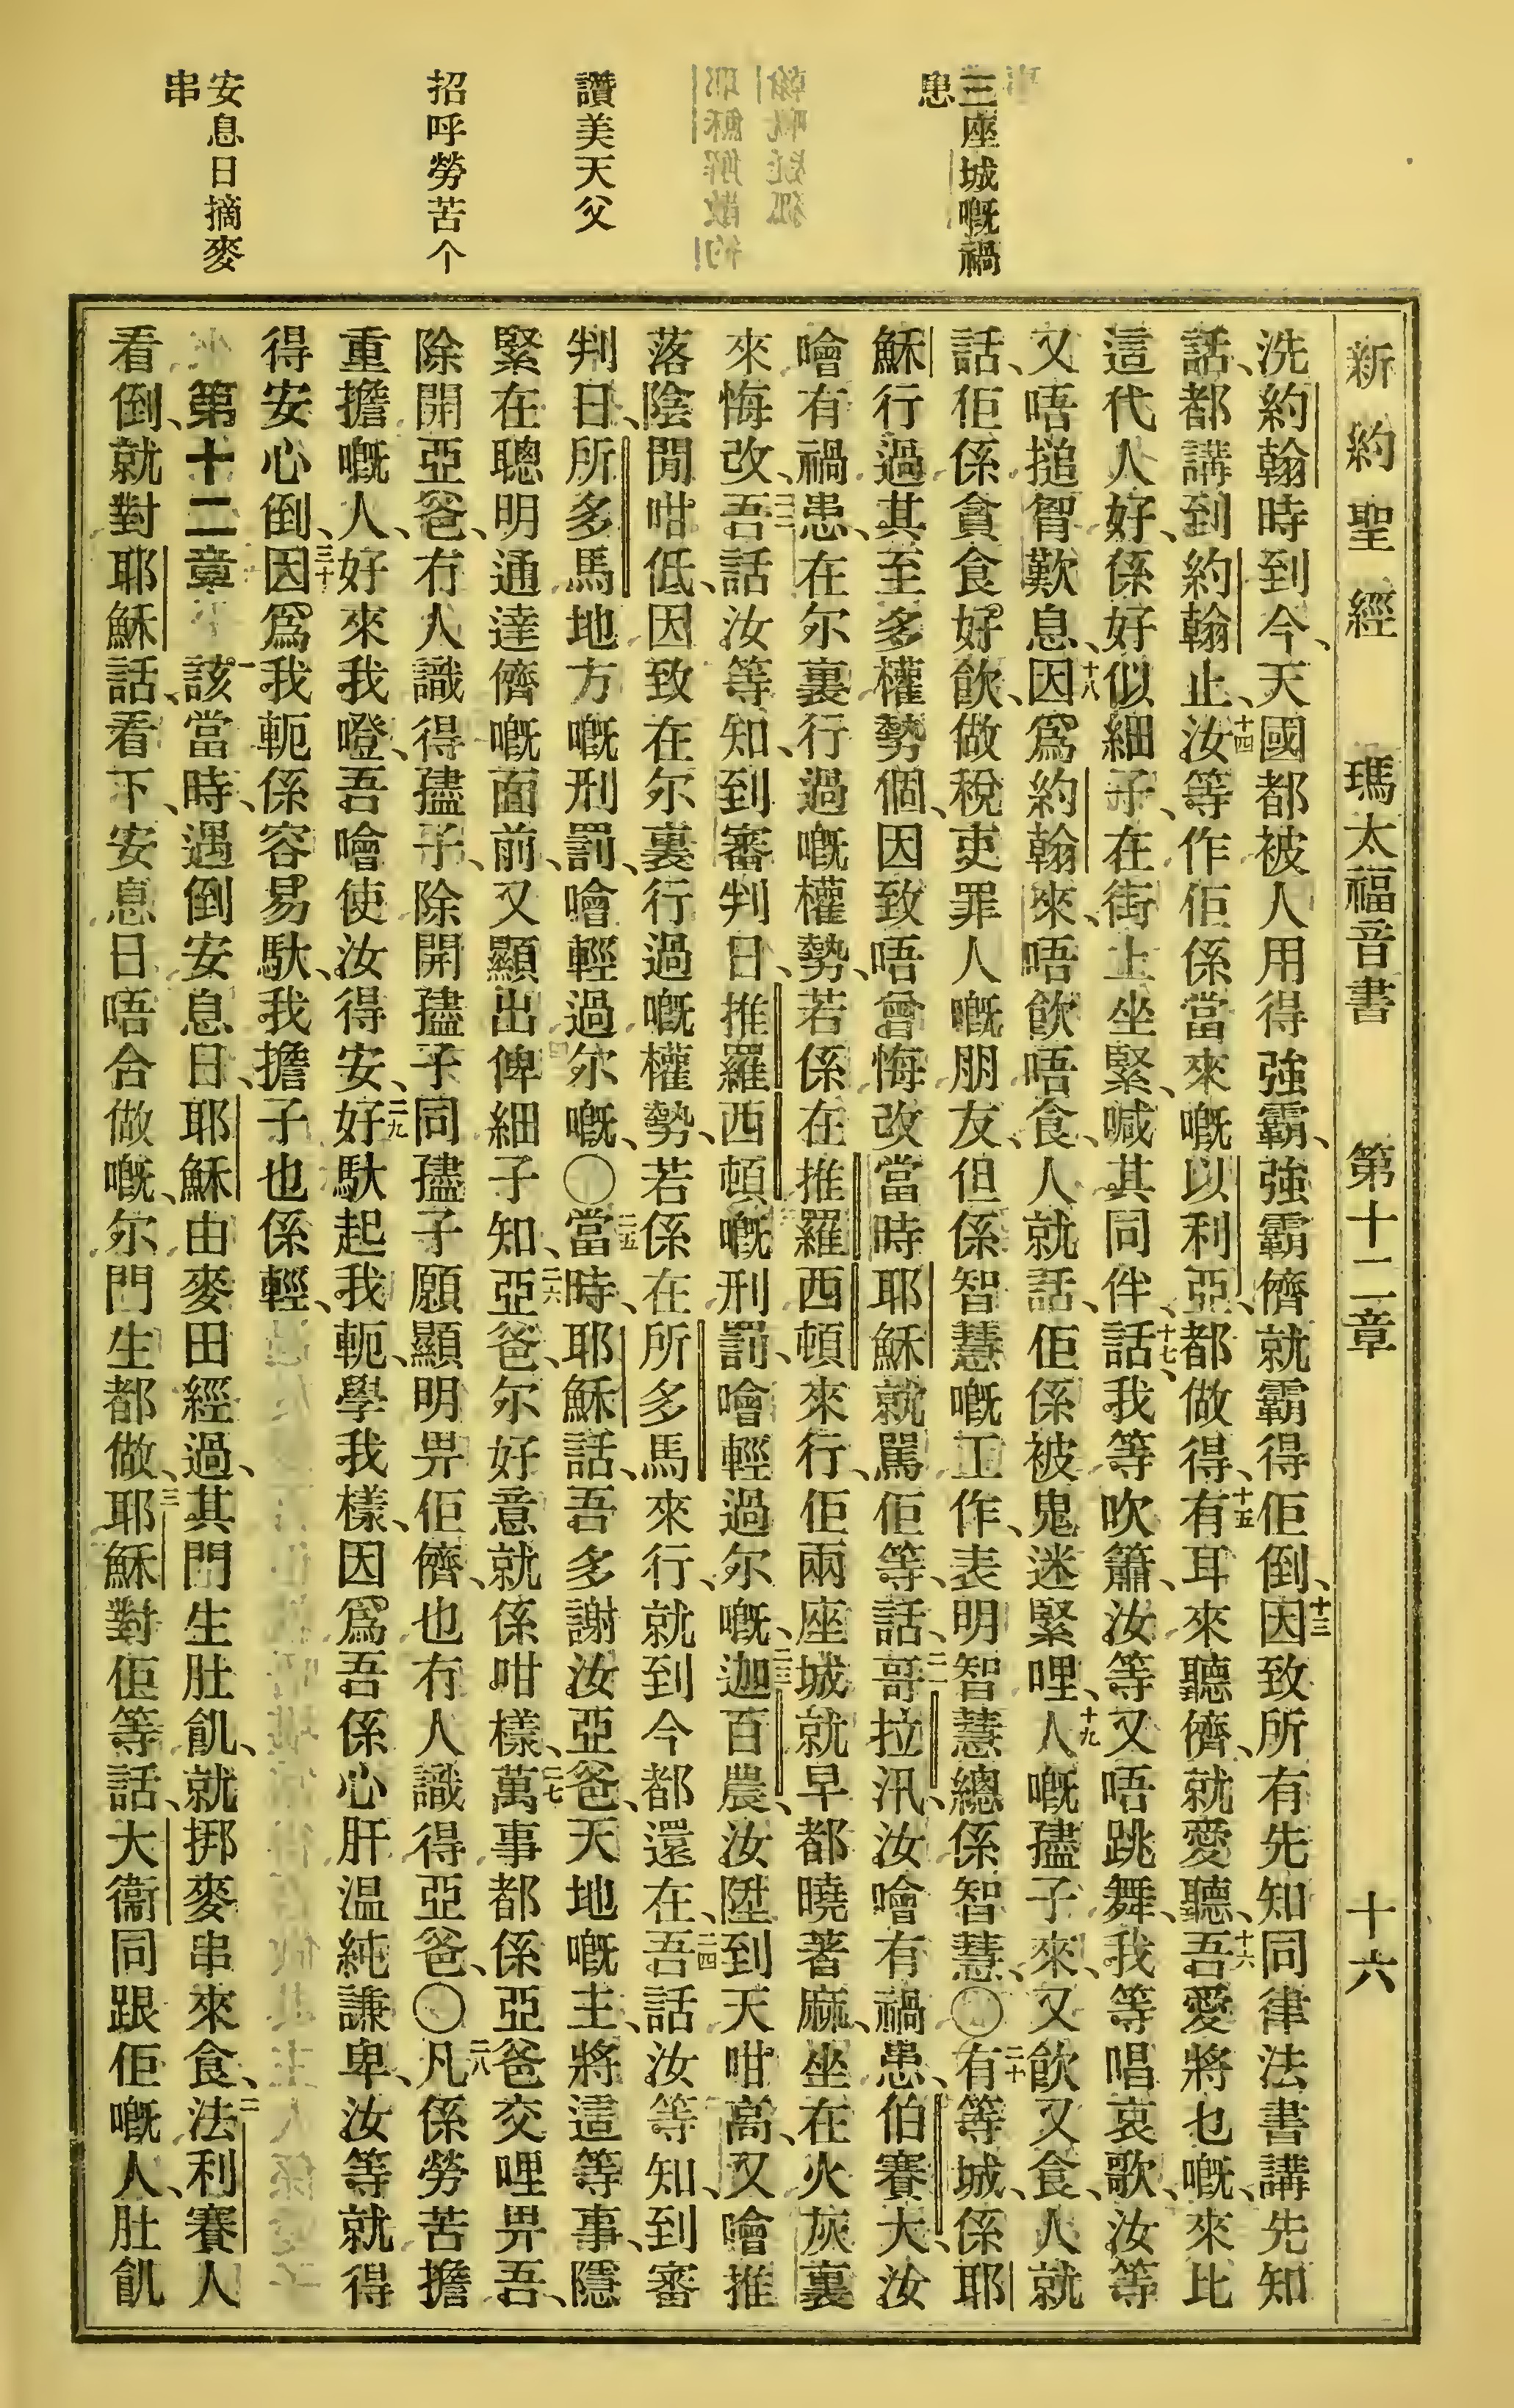 三座城嘅禍
患
讚美天父
招呼勞苦个
安息日摘麥
串
新約聖經 瑪太福音書 第十二章 十六
洗約翰時到今、天國都被人用得強霸、強霸儕就霸得佢倒、十三因致所有先知同律法書講先知
話、都講到約翰止、十四汝等作佢係當來嘅以利亞、都做得、十五有耳來聽儕、就愛聽、十六吾愛將乜嘅、來比
這代人好、係好似細子、在街上坐緊、喊其同伴、十七話、我等吹簫、汝等又唔跳舞、我等唱哀歌、汝等
又唔搥胷歎息、十八因爲約翰來、唔飲唔食、人就話、佢係被鬼迷緊哩、十九人嘅孻子來、又飲又食、人就
話、佢係貪食好飲、做稅吏罪人嘅朋友、但係智慧嘅工作、表明智慧總係智慧、〇二十有等城、係耶
穌行過其至多權勢個、因致唔曾悔改、當時耶穌就駡佢等、話、二一哥拉汛、汝噲有禍患、伯賽大、汝
噲有禍患、在尔裏行過嘅權勢、若係在推羅西頓來行、佢兩座城、就早都曉著麻、坐在火灰裏
來悔改、二二吾話汝等知、到審判日、推羅西頓嘅刑罰、噲輕過尔嘅、二三迦百農、汝陞到天咁高、又噲推
落陰間咁低、因致在尔裏行過嘅權勢、若係在所多馬來行、就到今都還在、二四吾話汝等知、到審
判日、所多馬地方嘅刑罰、噲輕過尔嘅、〇二五當時、耶穌話、吾多謝汝亞爸、天地嘅主、將這等事、隱
緊在聰明通達儕嘅面前、又顯出俾細子知、二六亞爸、尔好意就係咁樣、二七萬事都係亞爸交哩畀吾、
除開亞爸、冇人識得孻子、除開孻子同孻子願顯明畀佢儕、也冇人識得亞爸、〇二八凡係勞苦擔
重擔嘅人、好來我嶝、吾噲使汝得安、二九好馱起我軛、學我樣、因爲吾係心肝温純謙卑、汝等就得
得安心倒、三十因爲我軛係容易馱、我擔子也係輕、
第十二章 一該當時、遇倒安息日、耶穌由麥田經過、其門生肚飢、就挷麥串來食、二法利賽人
看倒、就對耶穌話、看下、安息日唔合做嘅、尔門生都做、三耶穌對佢等話、大衞同跟佢嘅人、肚飢